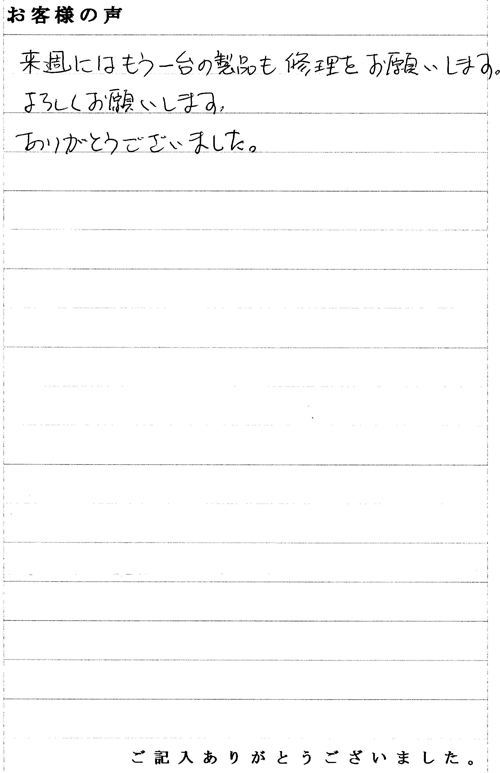 お客様の声
来週にはもう一台の製品も修理をお願いします。
よろしくお願いします。
ありがとうございました。
ご記入ありがとうございました。